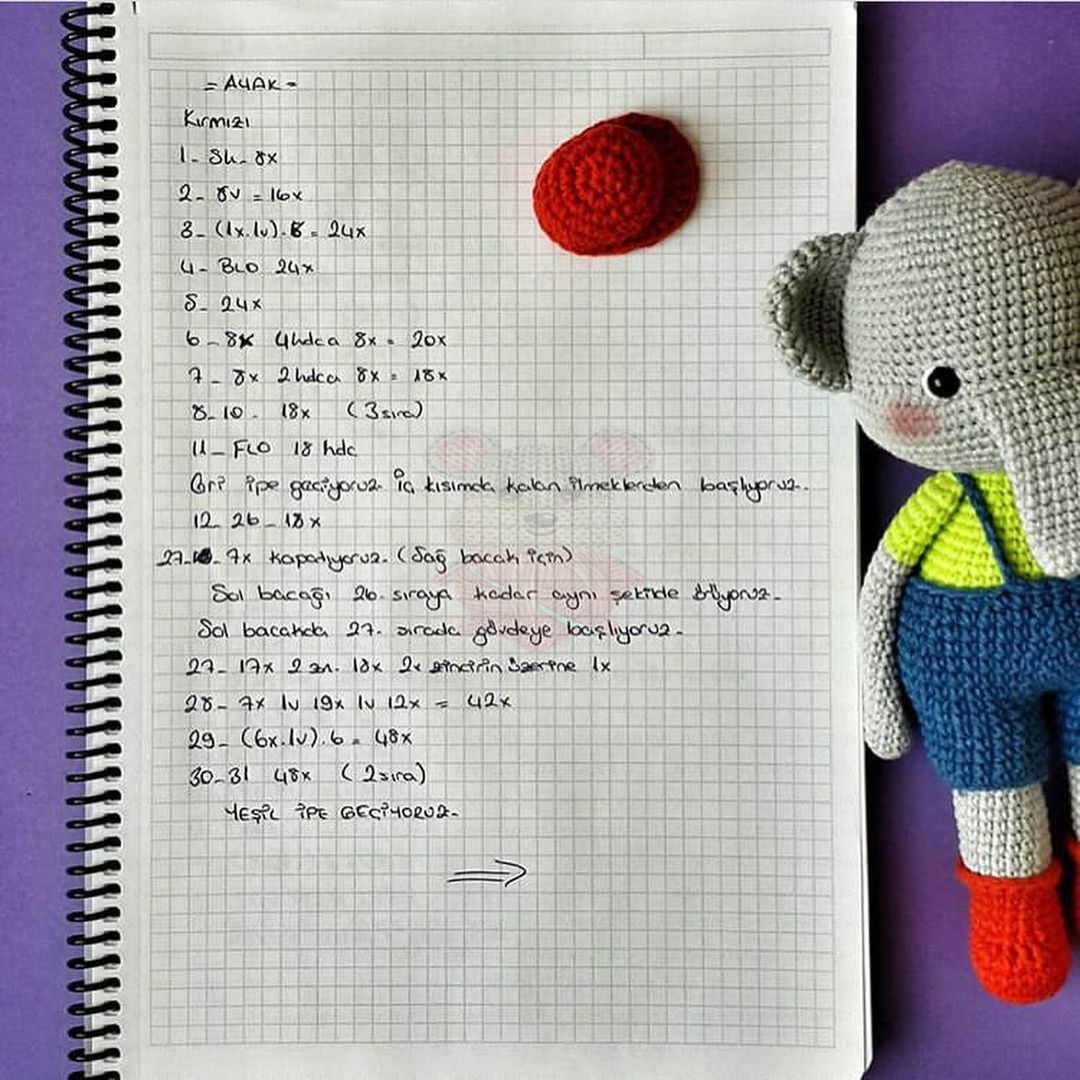 = AYAK =
Kırmızı
1- Sh- 8x
2- 8v = 16x
3- (1x.1v).8 = 24x
4- BLO 24x
5- 24x
6- 8x 4hdca 8x = 20x
7- 8x 2hdca 8x = 18x
8-10- 18x (3sıra)
11- FLO 18 hdc
Gri ipe geçiyoruz. İç kısımda kalan ilmeklerden başlıyoruz.
12-26- 18x
27- 7x kapatıyoruz. (Sağ bacak için)
Sol bacağı 26. sıraya kadar aynı şekilde örüyoruz.
Sol bacakda 27. sırada gövdeye başlıyoruz.
27- 17x 2 zn. 18x 2x zincirin üzerine 1x
28- 7x 1v 19x 1v 12x = 42x
29- (6x.1v).6 = 48x
30-31 48x (2sıra)
YEŞİL İPE GEÇİYORUZ.